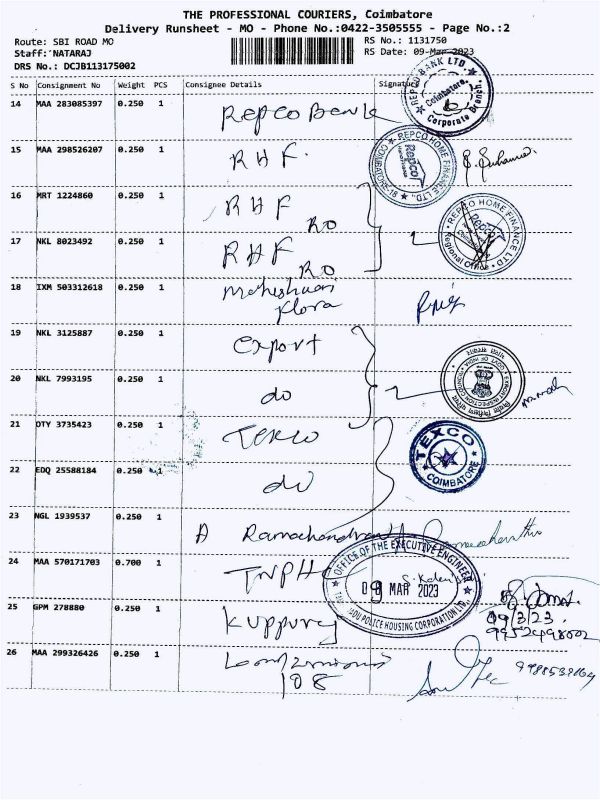 THE PROFESSIONAL COURIERS, Coimbatore
Delivery Runsheet - MO - Phone No.:0422-3505555 - Page No.:2
Route: SBI ROAD MO
RS No.: 1131750
Staff: NATARAJ
RS Date: 09-Mar-2023
DRS No.: DCJB113175002
S No Consignment No Weight PCS Consignee Details Signature
14 MAA 283085397 0.250 1 Repco Bank
REPCO BANK LTD. Coimbatore. Corporate Branch
15 MAA 298526207 0.250 1 RHF.
REPCO HOME FINANCE LTD., COIMBATORE-18 Repco
16 MRT 1224860 0.250 1 RHF RO
REPCO HOME FINANCE LTD Regional Office
17 NKL 8023492 0.250 1 RHF RO
18 IXM 503312618 0.250 1 Maheshwari
flora
19 NKL 3125887 0.250 1 export
20 NKL 7993195 0.250 1 do
21 OTY 3735423 0.250 1 Texco
TEXCO COIMBATORE
22 EDQ 25588184 0.250 1 do
23 NGL 1939537 0.250 1 A Ramachandran
24 MAA 570171703 0.700 1 TNPHC
OFFICE OF THE EXECUTIVE ENGINEER
09 MAR 2023
POLICE HOUSING CORPORATION LTD
25 GPM 278880 0.250 1
09/3/23
26 MAA 299326426 0.250 1
108